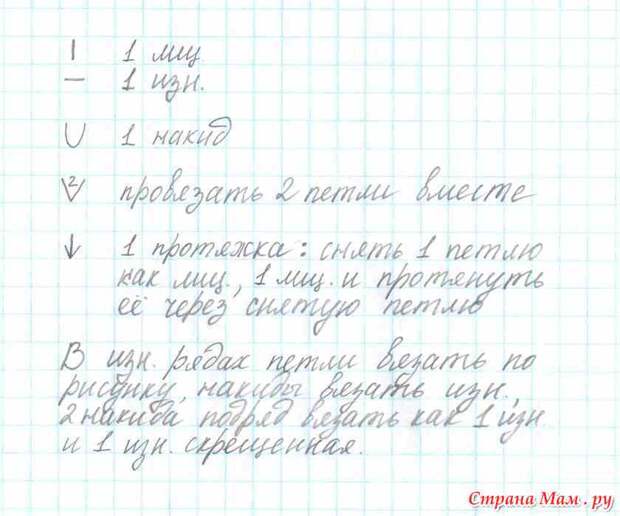 | 1 лиц
— 1 изн.
∪ 1 накид
2 провязать 2 петли вместе
↓ 1 протяжка: снять 1 петлю
как лиц., 1 лиц. и протянуть
её через снятую петлю
В изн. рядах петли вязать по
рисунку, накиды вязать изн.,
2 накида подряд вязать как 1 изн.
и 1 изн. скрещенная.
Страна Мам.ру